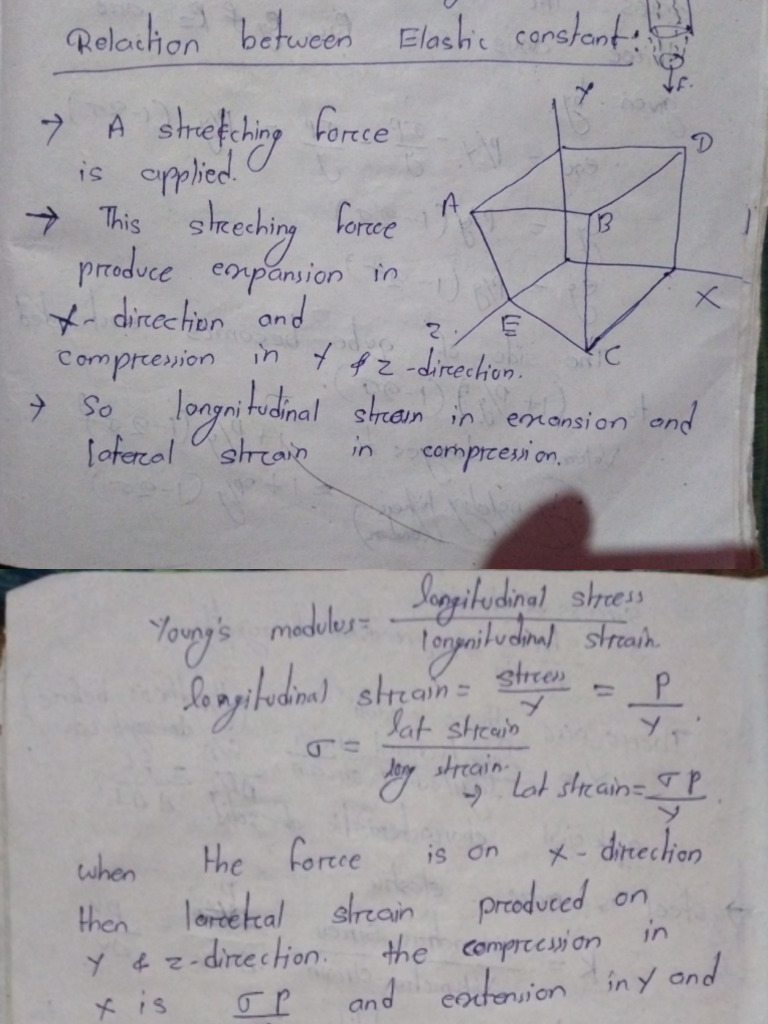 Relaction between Elastic constant:
F.
→ A stretching force
is applied.
→ This streching force
produce expansion in
X-direction and
compression in Y & Z-direction.
→ So longnitudinal strain in exansion and
lateral strain in compression.
Y
D
A
B
X
Z.
E
C
Young's modulus = longitudinal stress / longnitudinal strain
longitudinal strain = stress / Y = P / Y.
σ = lat strain / long strain.
→ Lat strain = σP / Y
when the force is on X-direction
then laretral strain produced on
Y & z-direction. the compression in
X is σP and extension in Y and